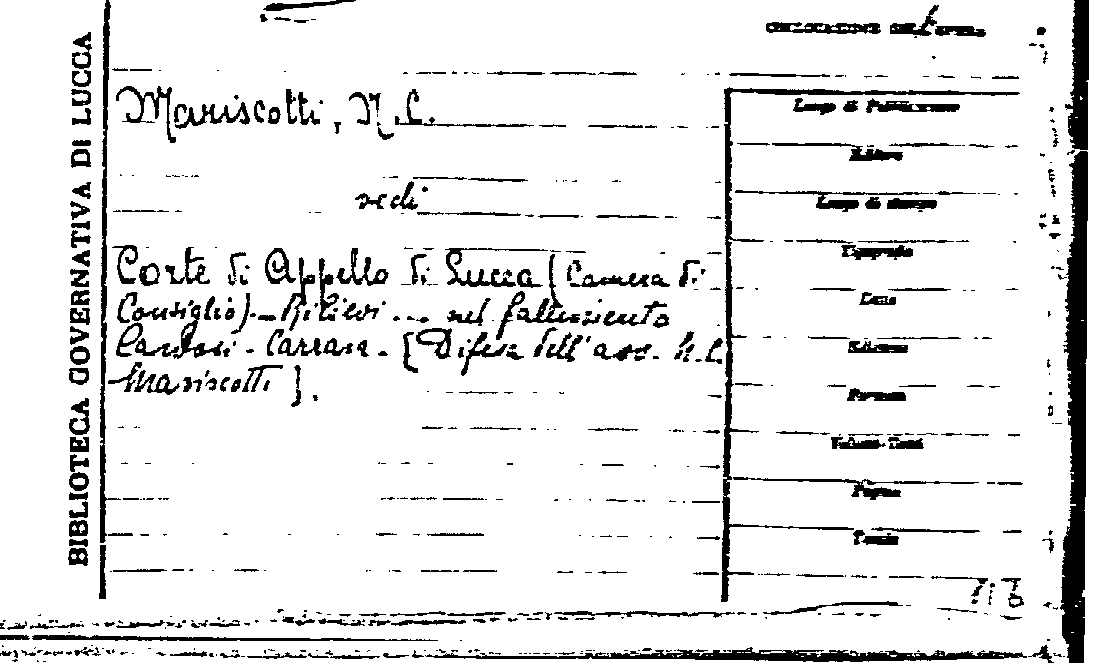 BIBLIOTECA GOVERNATIVA DI LUCCA
COLLOCAZIONE DELL'OPERA
Mariscotti, N. C.
vedi
Corte di Appello di Lucca (Camera di
Consiglio). - Rilievi ... nel fallimento
- Carrara - [Difesa dell'avv. N. C.
Mariscotti].
Luogo di Pubblicazione
Editore
Luogo di stampa
Tipografia
Data
Edizione
Formato
Volume-Tomi
Pagine
Tavole